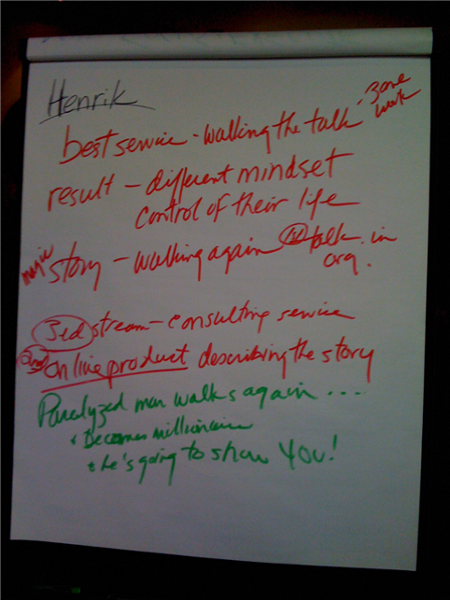 Henrik
best service - walking the talk - zone work
result - different mindset
control of their life
magic story - walking again talk in
org.
3rd stream - consulting service
2nd online product describing the story
Paralyzed man walks again ....
* Becomes millionaire
* he's going to show YOU!